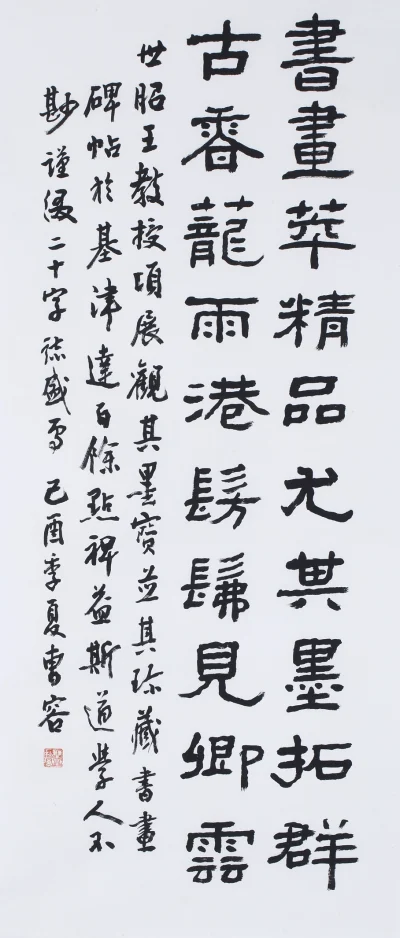 書畫萃精品尤其墨拓群
古香蘢雨港髣髴見卿雲
世昭王教授頃展觀其墨寶並其珍藏書畫
碑帖於基津達百餘點裨益斯道學人不
尠謹綴二十字誌盛焉 己酉季夏曹容